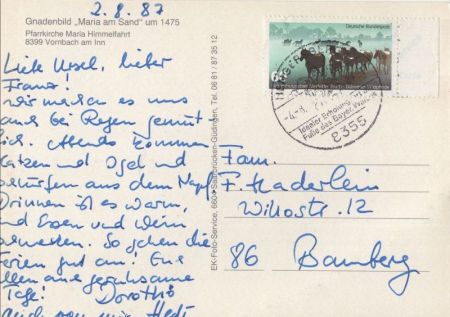 2.8.87
Gnadenbild „Maria am Sand" um 1475
Pfarrkirche Maria Himmelfahrt
8399 Vornbach am Inn
Liebe Ursel, lieber
Franz!
wir machen es uns
auch bei Regen gemüt
lich. Abends kommen
Katzen und Igel und
aus dem Napf.
Drinnen ist es warm,
und Essen und Wein
. So gehen die
Ferien gut an! Euch
allen geruhsame
Tage! Dorothé
auch von mir
EK-Foto-Service, 6604 Saarbrücken-Güdingen, Tel. 06 81 / 87 35 12
Deutsche Bundespost
Idealer Erholungs
Fuße des Bayer. Wald
8355
Fam.
F. Haderlein
Willostr. 12
86 Bamberg